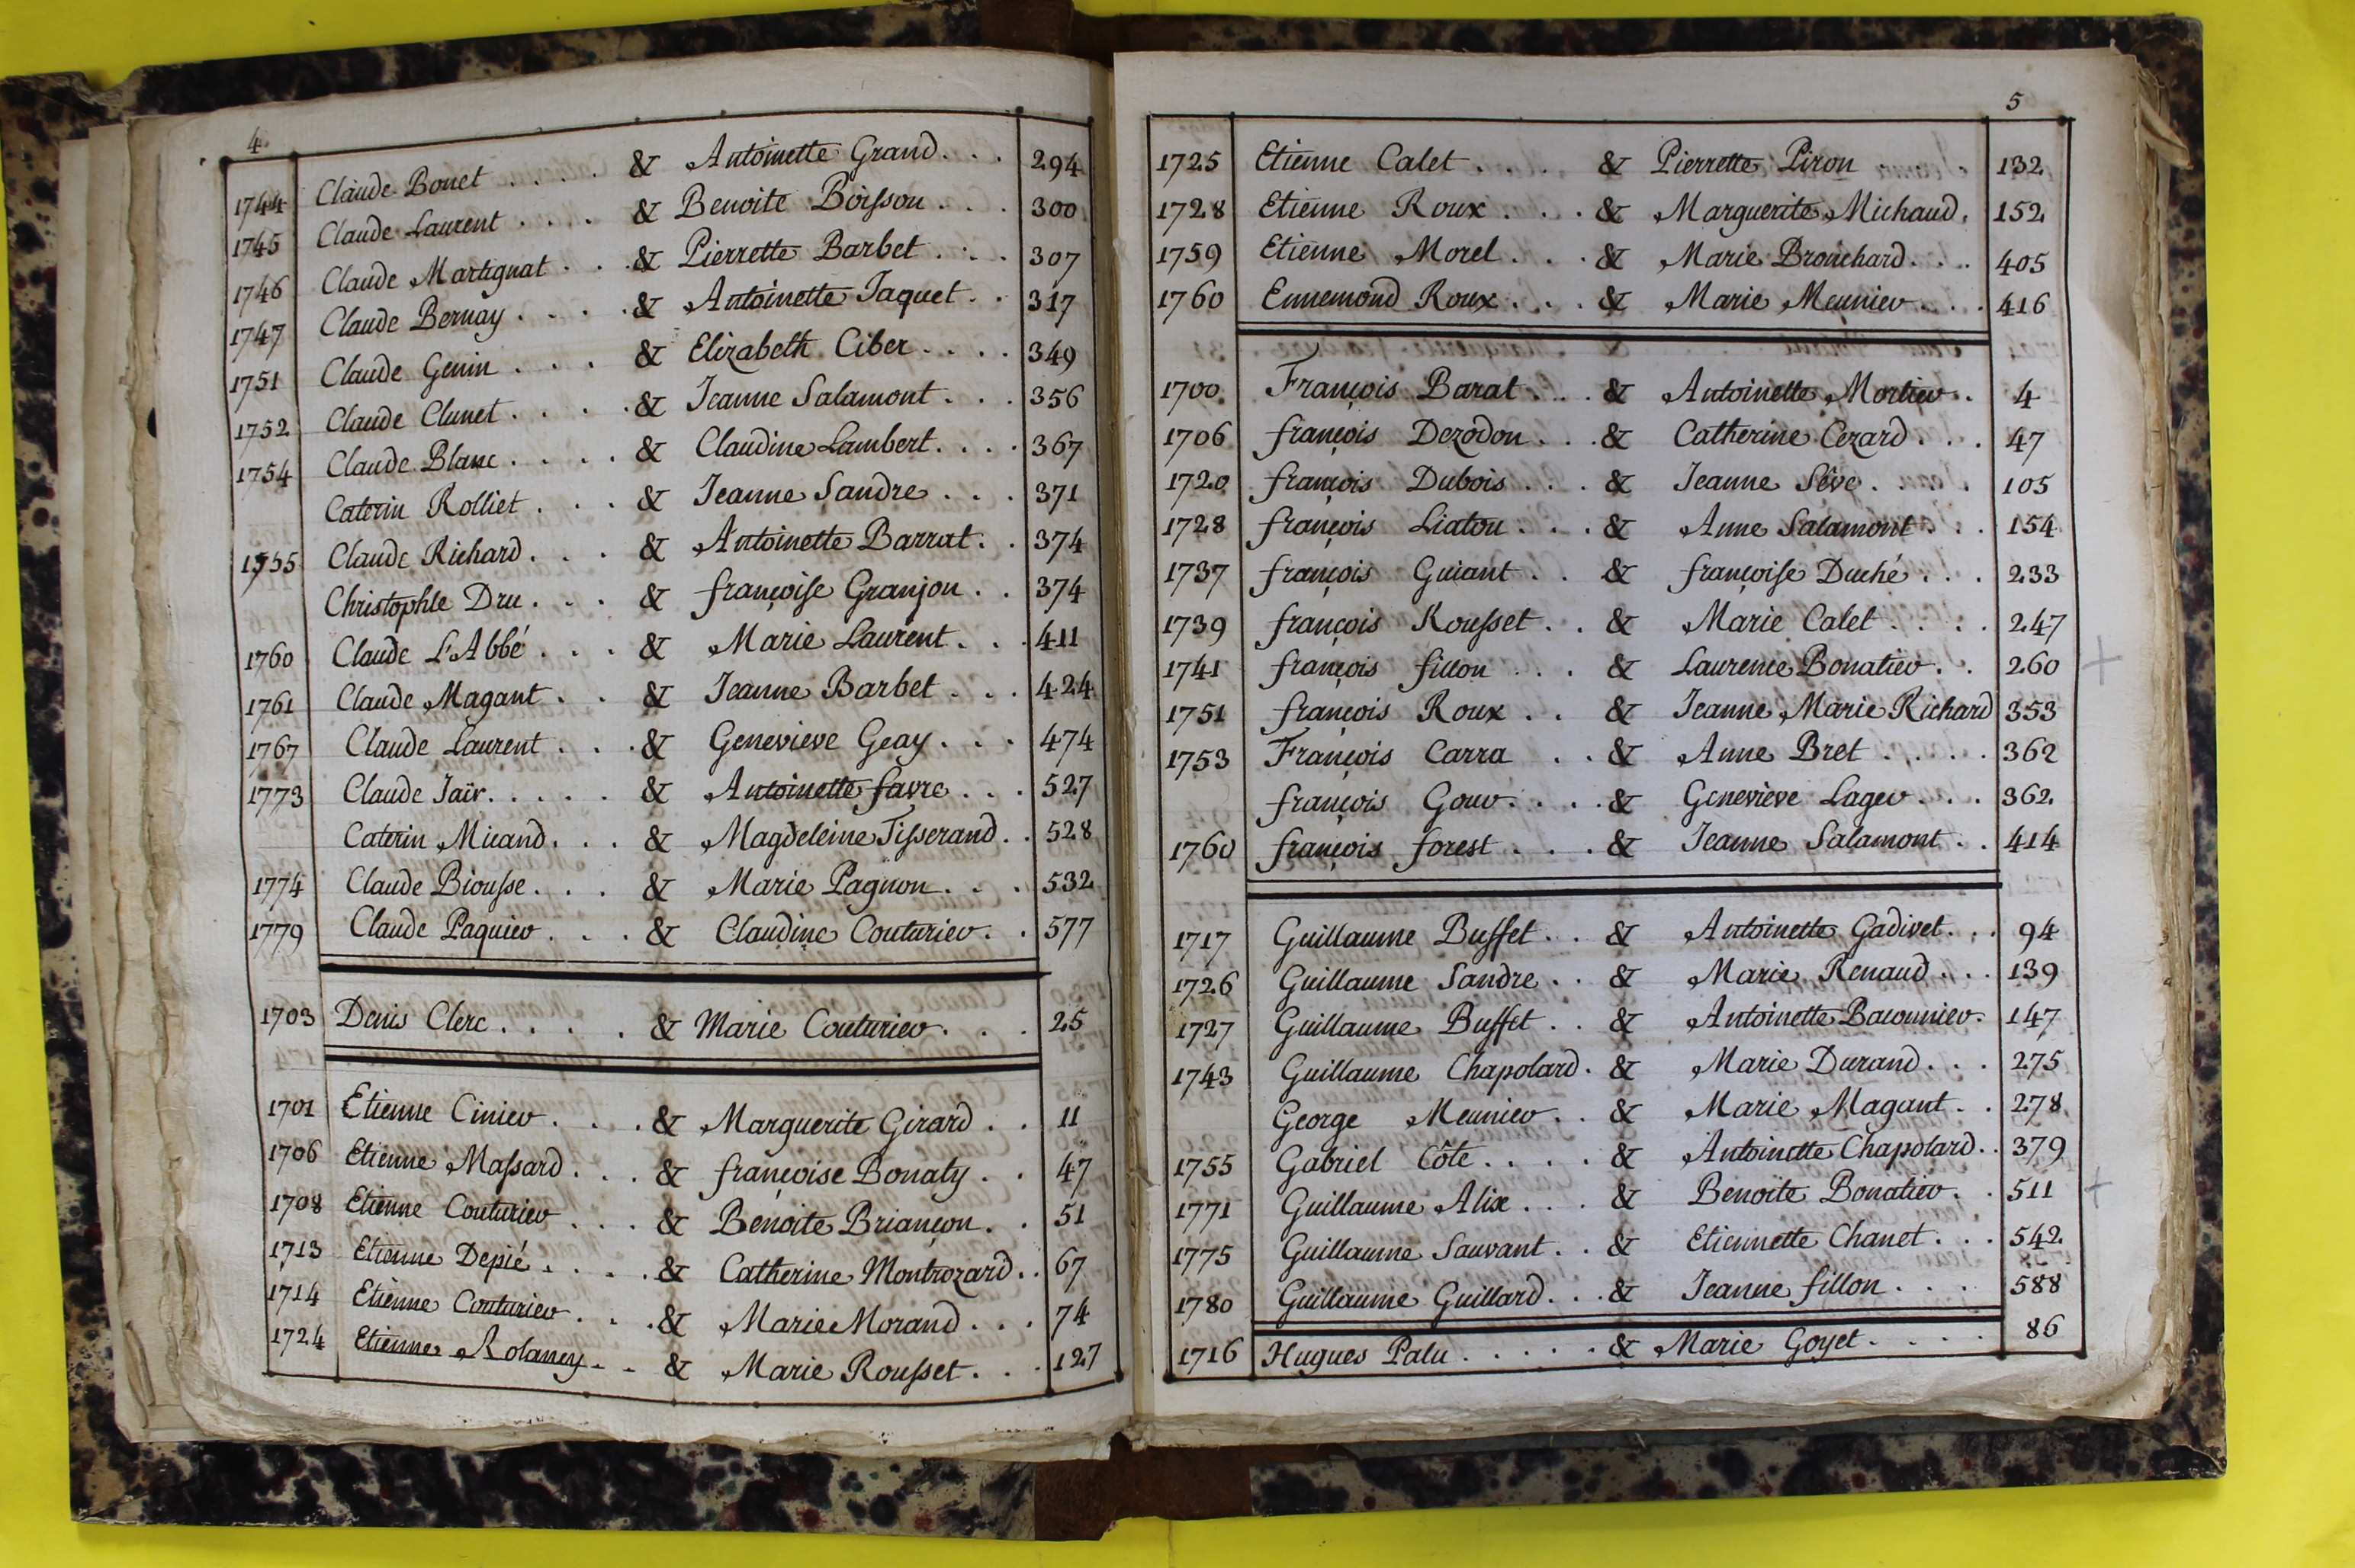 4
1744 Claude Bonet . . . . & Antoinette Grand . . . 294
1745 Claude Laurent . . . . & Benoite Boisson . . . 300
1746 Claude Martignat . . . & Pierrette Barbet . . . 307
1747 Claude Bernay . . . . & Antoinette Jaquet . . 317
1751 Claude Genin . . . . & Elizabeth Ciber . . . . 349
1752 Claude Clunet . . . . & Jeanne Salamont . . . 356
1754 Claude Blanc . . . . & Claudine Lambert . . . . 367
Caterin Rolliet . . . & Jeanne Sandre . . . 371
1755 Claude Richard . . . & Antoinette Barrat . . 374
Christophle Dru . . . & françoise Granjon . . 374
1760 Claude L'Abbé . . . & Marie Laurent . . . 411
1761 Claude Magant . . & Jeanne Barbet . . . 424
1767 Claude Laurent . . . & Genevieve Geay . . . 474
1773 Claude Jaïr . . . . . & Antoinette favre . . . 527
Caterin Micand . . . & Magdeleine Tisserand . . 528
1774 Claude Biousse . . . & Marie Pagnon . . . 532
1779 Claude Paquier . . . & Claudine Couturier . . 577
1703 Denis Clerc . . . . & Marie Couturier . . . 25
1701 Etienne Cinier . . . & Marguerite Girard . . 11
1706 Etienne Massard . . . & françoise Bonaty . . 47
1708 Etienne Couturier . . . & Benoite Briançon . . 51
1713 Etienne Depié . . . . & Catherine Montrozard . . 67
1714 Etienne Couturier . . . & Marie Morand . . . 74
1724 Etienne Rolaney . . & Marie Rousset . . . 127
5
1725 Etienne Calet . . . & Pierrette Piron . . . 132
1728 Etienne Roux . . . & Marguerite Michaud . 152
1759 Etienne Morel . . . & Marie Brouchard . . . 405
1760 Ennemond Roux . . . & Marie Meunier . . . 416
1700 François Barat . . . & Antoinette Mortier . 4
1706 françois Dezodon . . . & Catherine Cezard . . . 47
1720 françois Dubois . . . & Jeanne Séve . . . 105
1728 françois Liatou . . . & Anne Salamont . . . 154
1737 françois Guiant . . & françoise Duché . . . 233
1739 françois Rousset . . & Marie Calet . . . . 247
1741 françois fillon . . . & Laurence Bonatier . . 260
1751 françois Roux . . & Jeanne Marie Richard 353
1753 François Carra . . & Anne Bret . . . . 362
françois Gour . . . . & Genevieve Lager . . . 362
1760 françois forest . . . & Jeanne Salamont . . 414
1717 Guillaume Buffet . . & Antoinette Gadivet . . . 94
1726 Guillaume Sandre . . & Marie Renaud . . . 139
1727 Guillaume Buffet . . & Antoinette Baconnier . 147
1743 Guillaume Chapolard . & Marie Durand . . . 275
George Meunier . . & Marie Magant . . 278
1755 Gabriel Côte . . . . & Antoinette Chapolard . . 379
1771 Guillaume Alix . . . & Benoite Bonatier . . 511
1775 Guillaume Sauvant . . & Etiennette Chanet . . . 542
1780 Guillaume Guillard . . . & Jeanne fillon . . . . 588
1716 Hugues Palu . . . . . & Marie Goyet . . . . 86